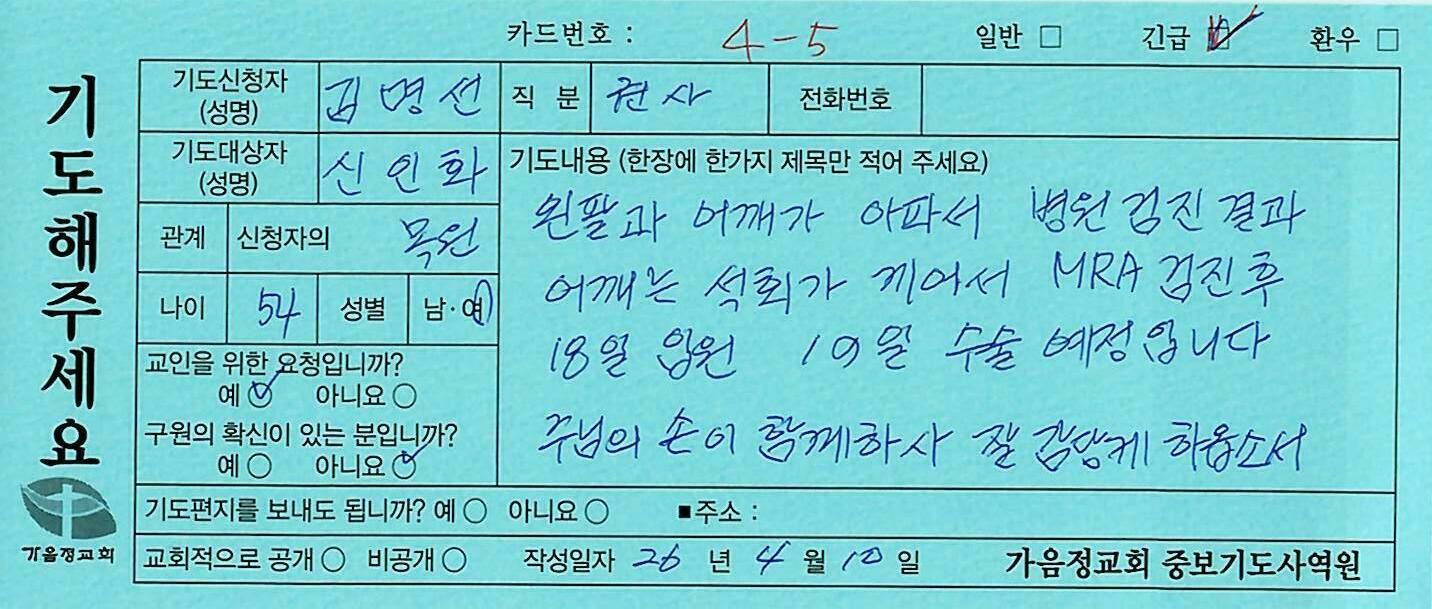 카드번호 : 4-5 일반 □ 긴급 □ 환우 □
기도해주세요
기도신청자 (성명) 김명선 직 분 권사 전화번호
기도대상자 (성명) 신인화
기도내용 (한장에 한가지 제목만 적어 주세요)
왼팔과 어깨가 아파서 병원검진결과
어깨는 석회가 끼어서 MRA 검진후
18일 입원 19일 수술 예정입니다
주님의 손이 함께하사 잘 감당케 하옵소서
관계 신청자의 목원
나이 54 성별 남·여
교인을 위한 요청입니까?
예 ○ 아니요 ○
구원의 확신이 있는 분입니까?
예 ○ 아니요 ○
기도편지를 보내도 됩니까? 예 ○ 아니요 ○ ■주소 :
교회적으로 공개 ○ 비공개 ○ 작성일자 26 년 4 월 10 일 가음정교회 중보기도사역원
가음정교회